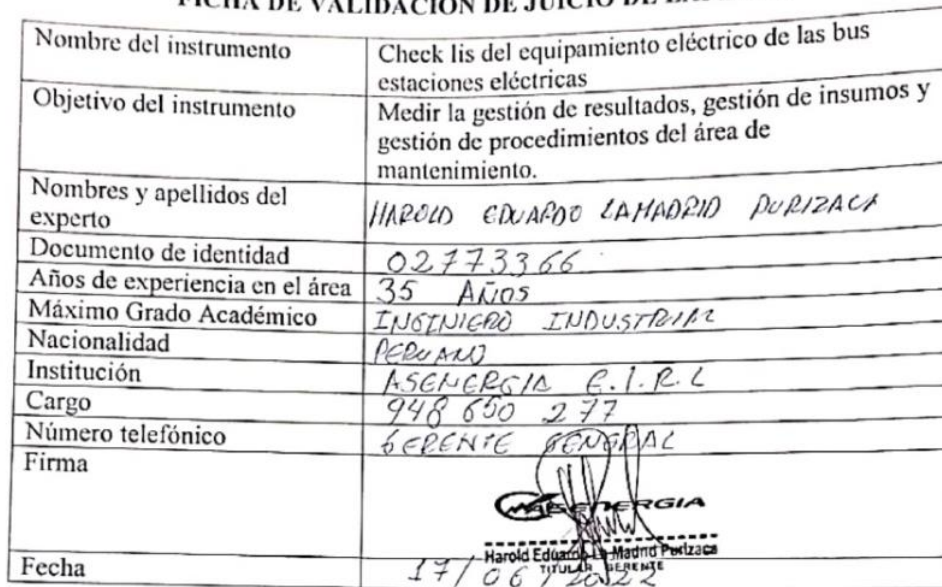 FICHA DE VALIDACIÓN DE JUICIO DE
Nombre del instrumento
Check lis del equipamiento eléctrico de las bus
estaciones eléctricas
Objetivo del instrumento
Medir la gestión de resultados, gestión de insumos y
gestión de procedimientos del área de
mantenimiento.
Nombres y apellidos del
experto
HAROLD EDUARDO LAMADRID PURIZACA
Documento de identidad
02773366
Años de experiencia en el área
35 AÑOS
Máximo Grado Académico
INGENIERO INDUSTRIAL
Nacionalidad
PERUANO
Institución
ASENERGIA E.I.R.L
Cargo
948 650 277
Número telefónico
GERENTE GENERAL
Firma
ASENERGIA
Harold Eduardo La Madrid Purizaca
TITULAR GERENTE
Fecha
17/06/2022